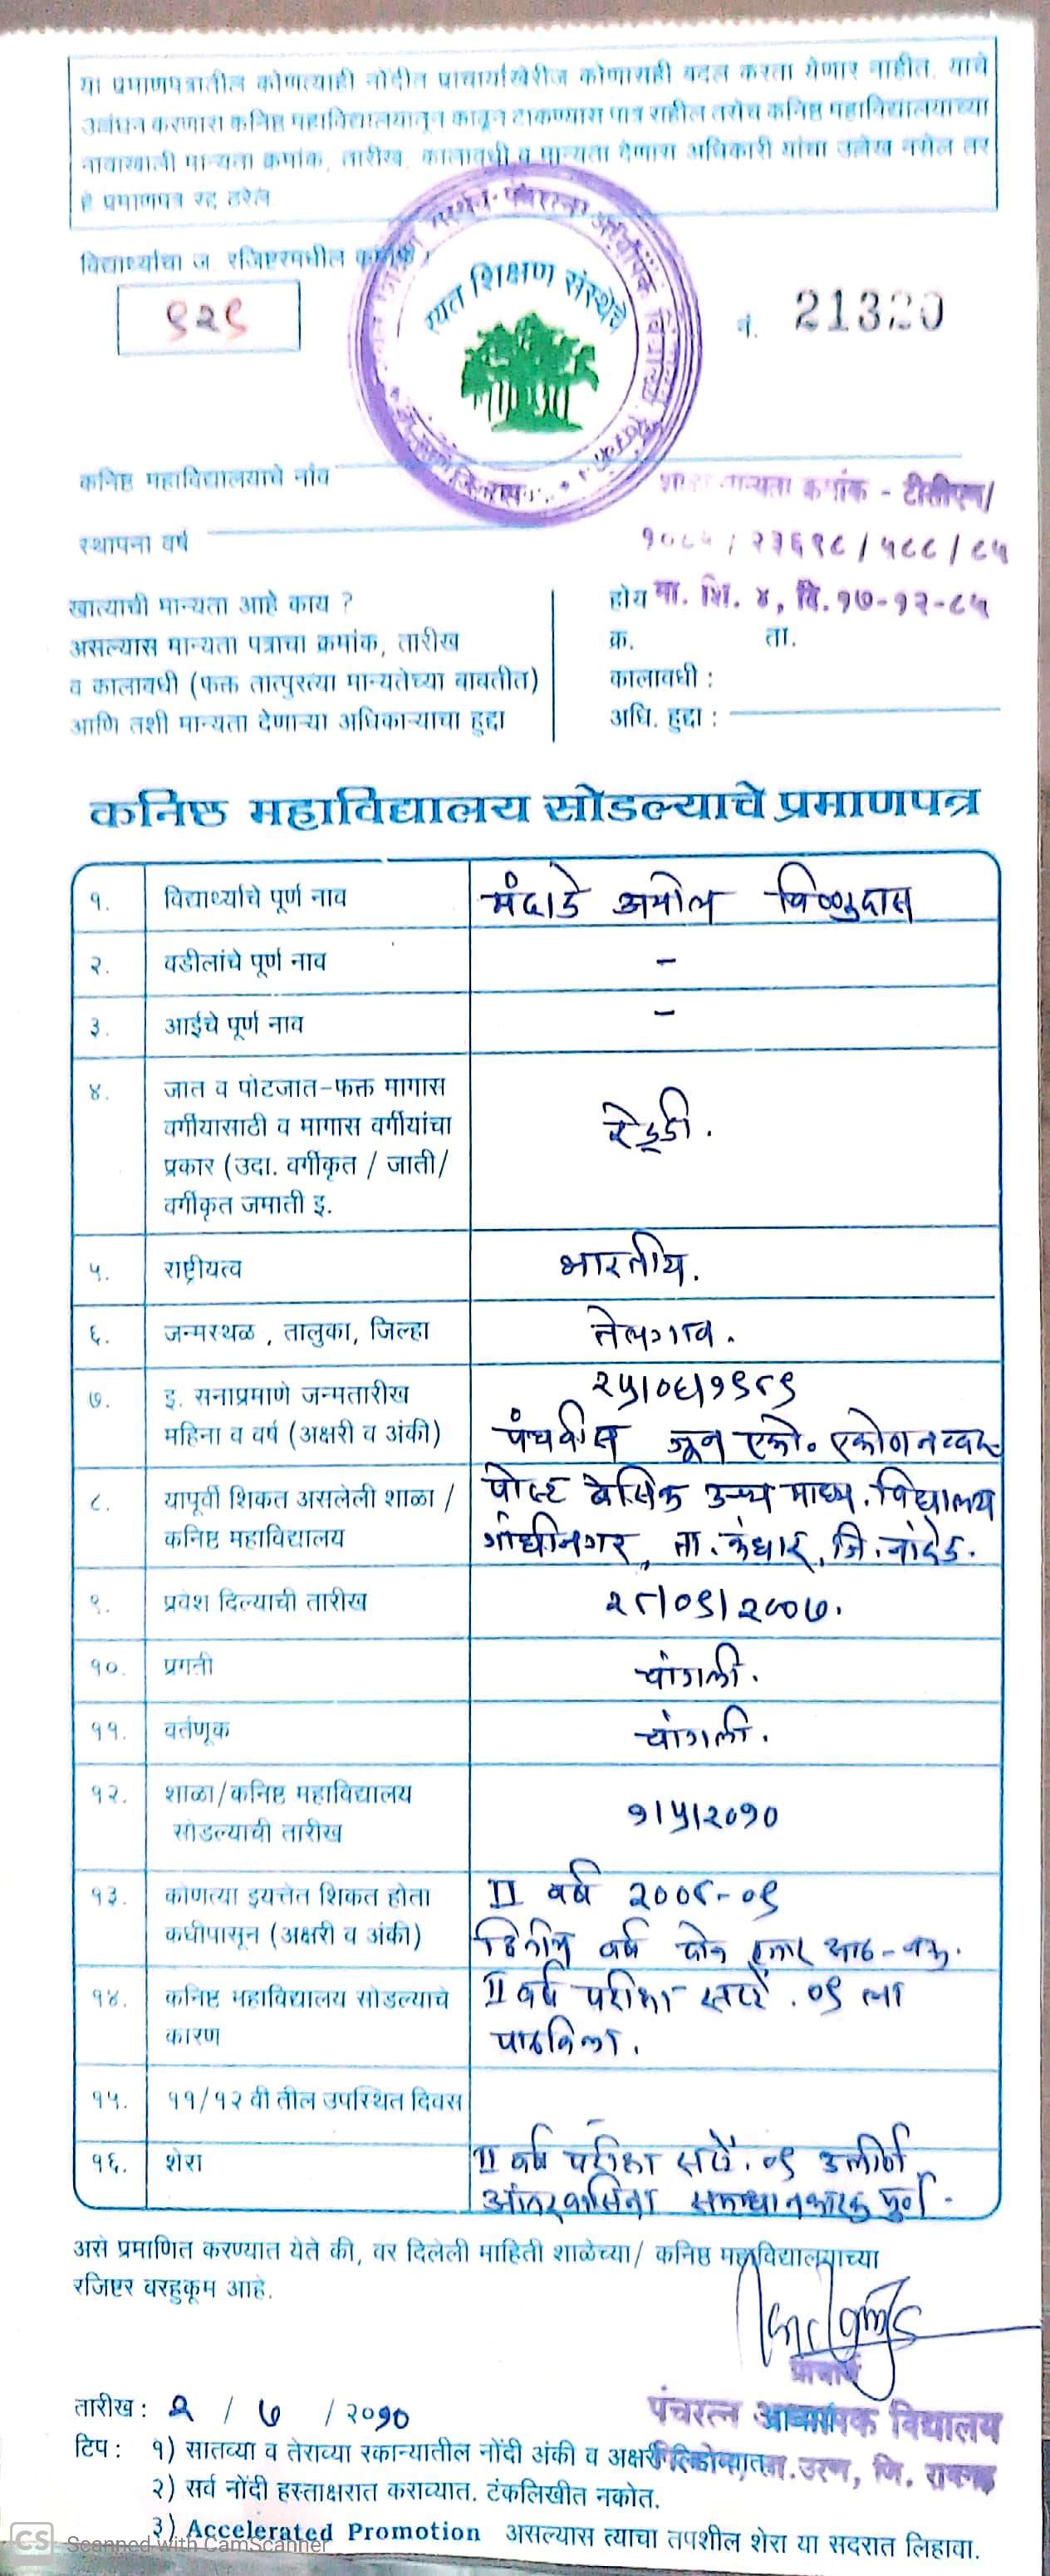 या प्रमाणपत्रातील कोणत्याही नोंदीत प्राचार्याखेरीज कोणासही बदल करता येणार नाहीत. याचे
उल्लंघन करणारा कनिष्ठ महाविद्यालयातून काढून टाकण्यास पात्र राहील तसेच कनिष्ठ महाविद्यालयाच्या
नावाखाली मान्यता क्रमांक, तारीख, कालावधी व मान्यता देणारा अधिकारी यांचा उल्लेख नसेल तर
हे प्रमाणपत्र रद्द ठरेल
विद्यार्थ्याचा ज. रजिष्टरमधील क्रमांक
९२९
रयत शिक्षण संस्थेचे
नं. 21320
कनिष्ठ महाविद्यालयाचे नांव
मान्यता क्रमांक - टीसीएम/
स्थापना वर्ष
१०८५ / २३६९८ / ५८८ / ८५
खात्याची मान्यता आहे काय ?
होय मा. शि. ४, दि. १७-१२-८५
असल्यास मान्यता पत्राचा क्रमांक, तारीख
क्र. ता.
व कालावधी (फक्त तात्पुरत्या मान्यतेच्या बाबतीत)
कालावधी :
आणि तशी मान्यता देणाऱ्या अधिकाऱ्याचा हुद्दा
अधि. हुद्दा :
कनिष्ठ महाविद्यालय सोडल्याचे प्रमाणपत्र
१. विद्यार्थ्याचे पूर्ण नाव मंदाडे अमोल विष्णुदास
२. वडीलांचे पूर्ण नाव -
३. आईचे पूर्ण नाव -
४. जात व पोटजात-फक्त मागास
वर्गीयासाठी व मागास वर्गीयांचा
प्रकार (उदा. वर्गीकृत / जाती/
वर्गीकृत जमाती इ.
रेड्डी.
५. राष्ट्रीयत्व भारतीय.
६. जन्मस्थळ , तालुका, जिल्हा तेलगाव.
७. इ. सनाप्रमाणे जन्मतारीख
महिना व वर्ष (अक्षरी व अंकी)
२५/०६/१९८९
पंचवीस जून एको. एकोणनव्वद
८. यापूर्वी शिकत असलेली शाळा /
कनिष्ठ महाविद्यालय
पोस्ट बेसिक उच्च माध्य. विद्यालय
गांधीनगर, ता. कंधार, जि. नांदेड.
९. प्रवेश दिल्याची तारीख २८/०९/२००७.
१०. प्रगती चांगली.
११. वर्तणूक चांगली.
१२. शाळा/कनिष्ठ महाविद्यालय
सोडल्याची तारीख
१/५/२०१०
१३. कोणत्या इयत्तेत शिकत होता
कधीपासून (अक्षरी व अंकी)
II वर्ष २००८-०९
द्वितीय वर्ष दोन हजार आठ-नऊ.
१४. कनिष्ठ महाविद्यालय सोडल्याचे
कारण
II वर्ष परीक्षा सप्टें. ०९ ला
पाठविला.
१५. ११/१२ वी तील उपस्थित दिवस
१६. शेरा
II वर्ष परीक्षा सप्टें. ०९ उत्तीर्ण
आंतरवासिता समाधानकारक पूर्ण.
असे प्रमाणित करण्यात येते की, वर दिलेली माहिती शाळेच्या/ कनिष्ठ महाविद्यालयाच्या
रजिष्टर बरहुकूम आहे.
प्राचार्य
तारीख : २ / ७ / २०१०
पंचरत्न अध्यापक विद्यालय
टिप : १) सातव्या व तेराव्या रकान्यातील नोंदी अंकी व अक्षरी लिहाव्यात
ता. उरण, जि. रायगड
२) सर्व नोंदी हस्ताक्षरात कराव्यात. टंकलिखीत नकोत.
३) Accelerated Promotion असल्यास त्याचा तपशील शेरा या सदरात लिहावा.
CS Scanned with CamScanner